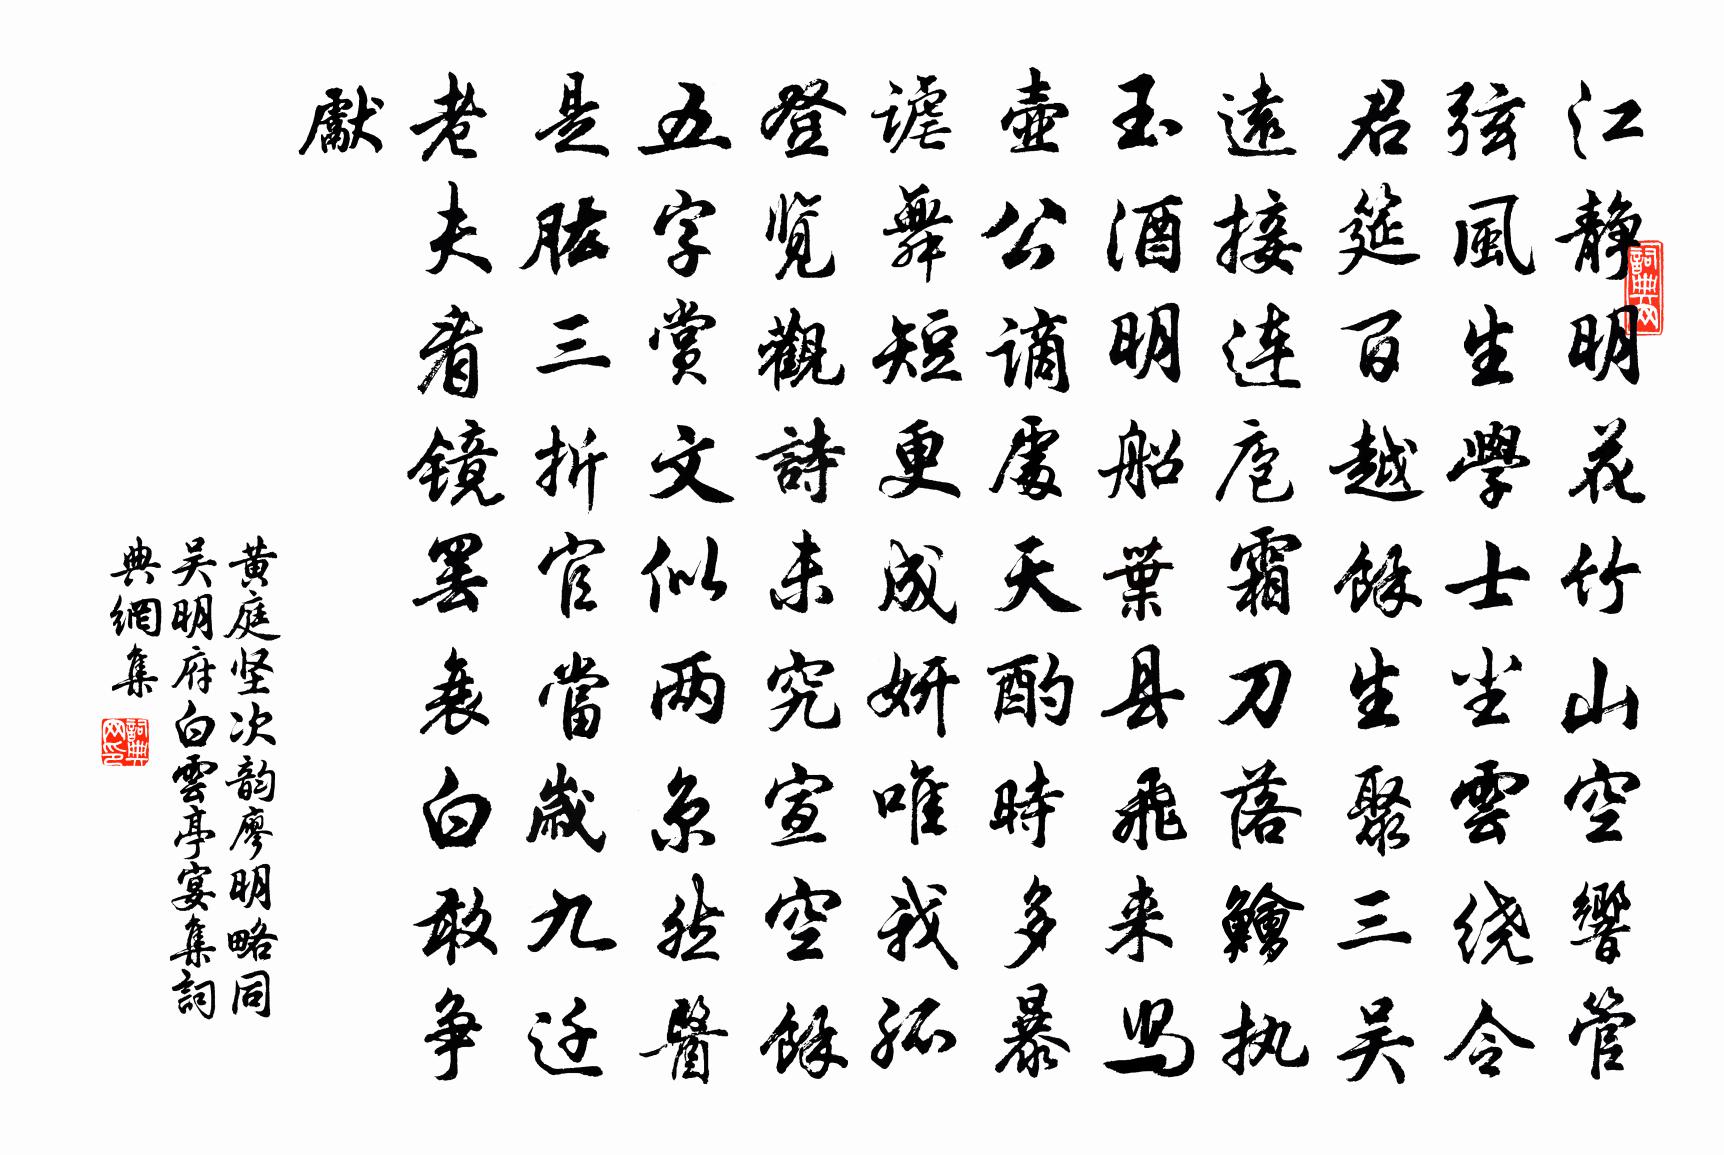 江静明花竹山空響管
弦風生學士尘雲绕令
君筵百越餘生聚三吴
遠接连庖霜刀落鱠执
玉酒明船葉县飛来舄
壺公谪處天酌時多暴
谑舞短更成妍唯我孤
登览觀詩未究宣空餘
五字赏文似两京然醫
是肱三折官當歲九迁
老夫看镜罢衰白敢争
獻
黄庭坚次韵廖明略同
吴明府白雲亭宴集詞
典網集
詞典网
詞典网印